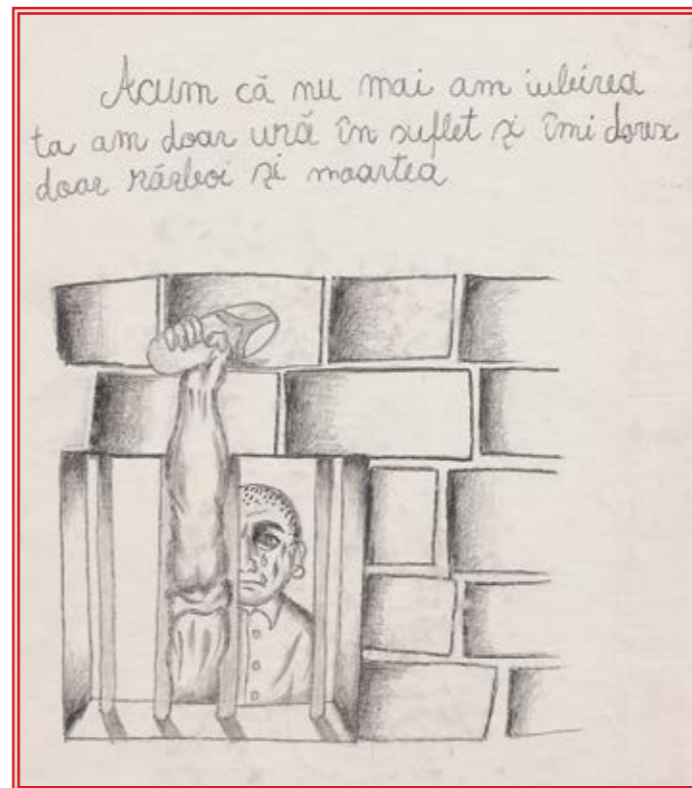 Acum că nu mai am iubirea
ta am doar ură în suflet și îmi doresc
doar război și moartea